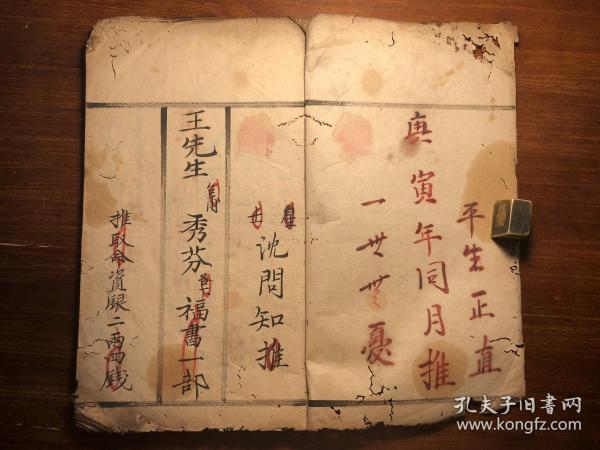 平生正直
庚寅年同月推
一世世憂
沈問知推
王先生 秀芬 福書一部
推取命資銀二兩四錢
孔夫子旧书网
www.kongfz.com